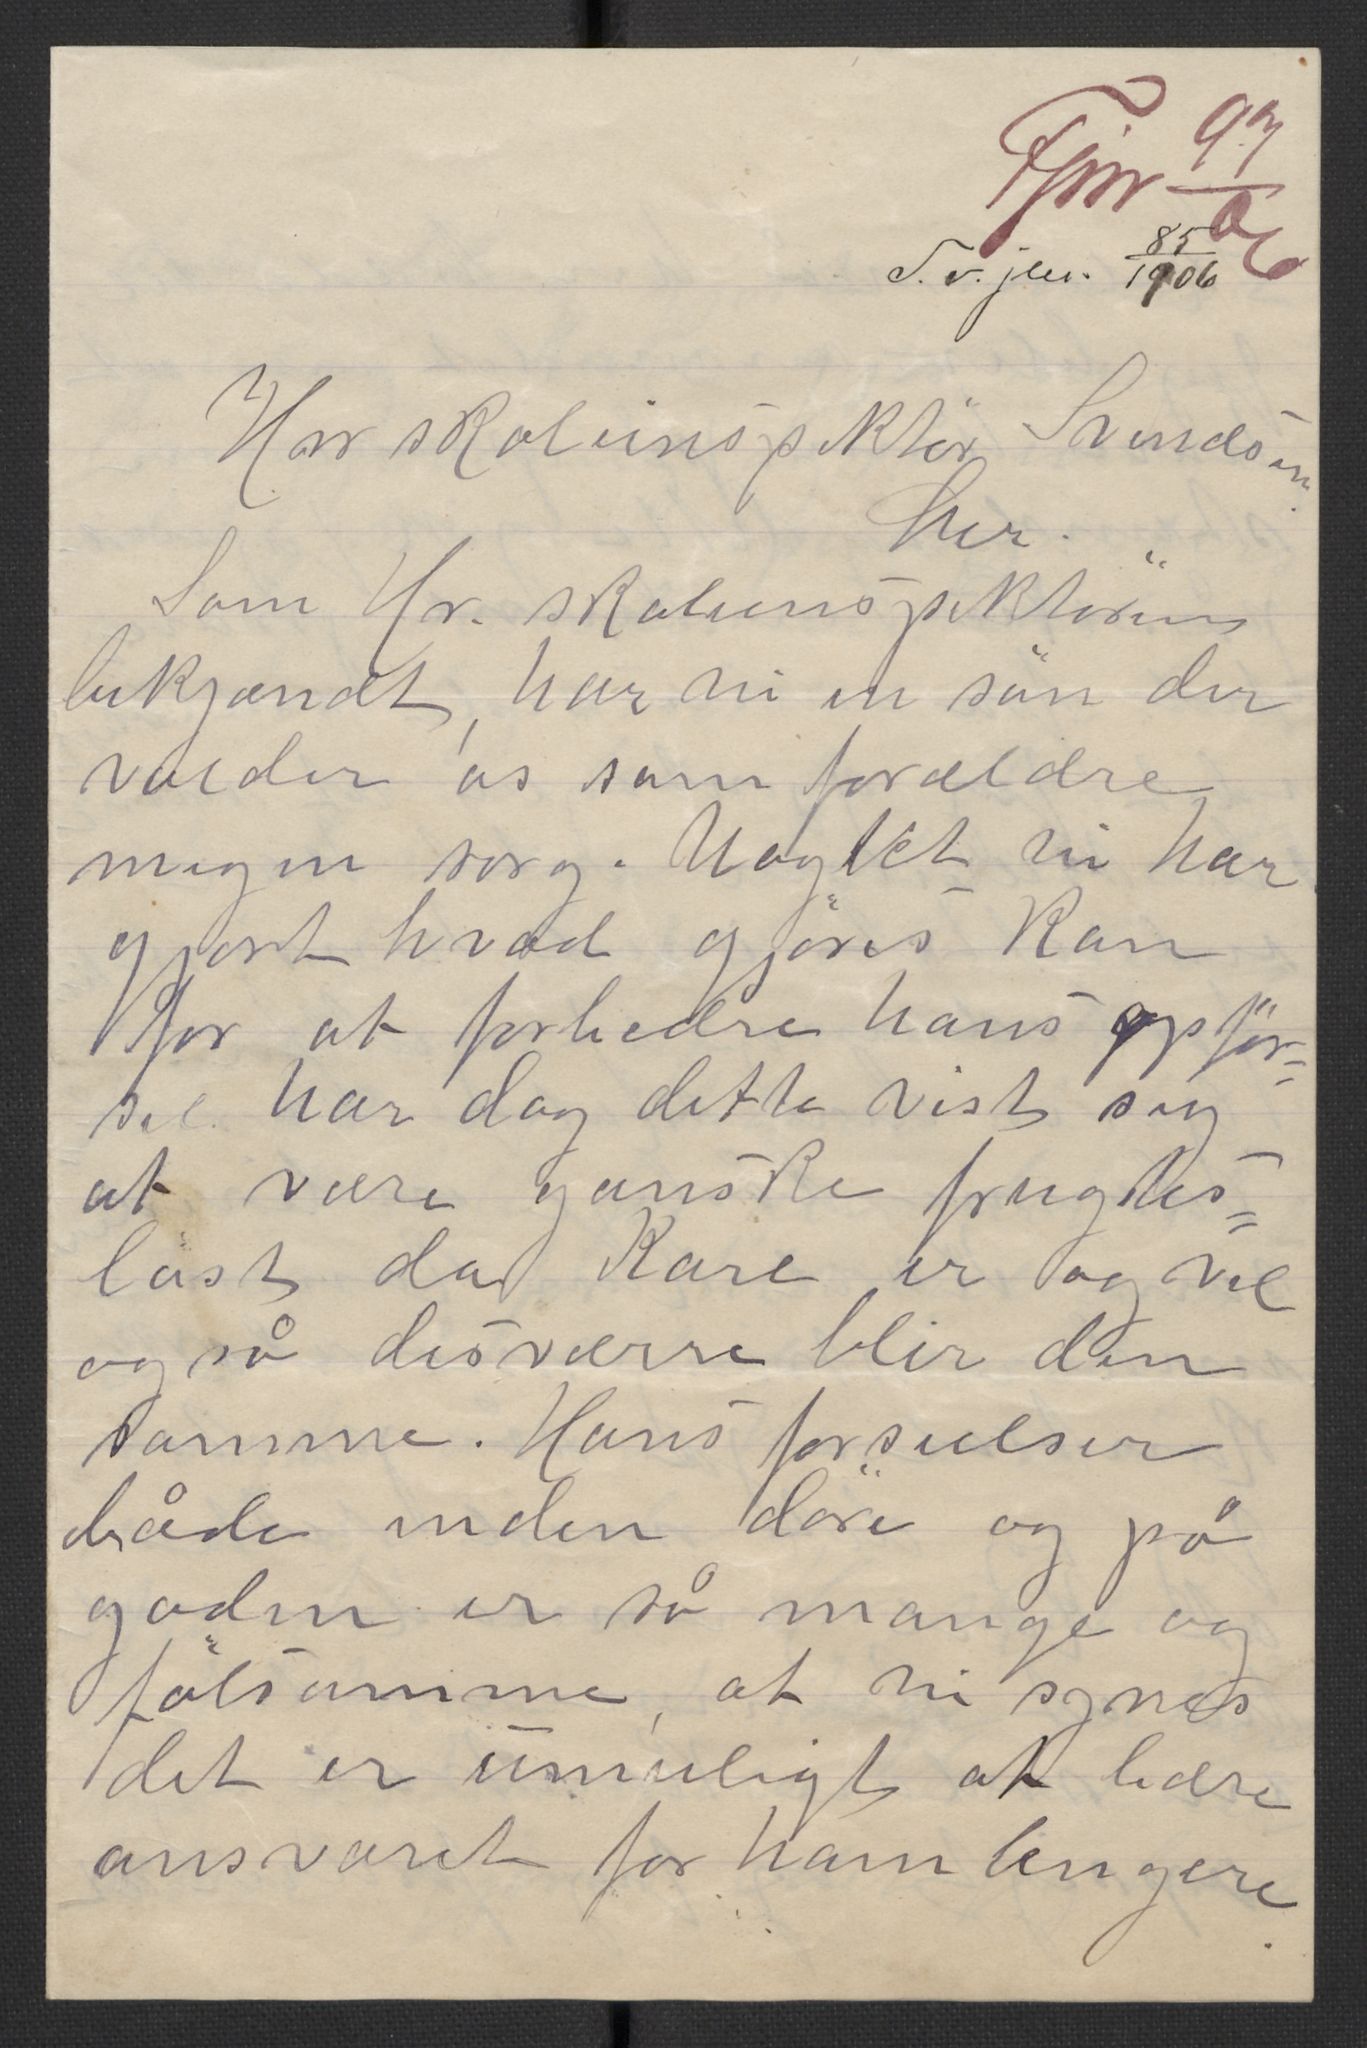 97
Fjnr 06
S.v. jnr. 85
1906
Herr skoleinspektör Svendsen
her.
Som Hr. skoleinspektören
bekjendt, har vi en sön der
volder os som forældre
megen sorg. Uagtet vi har
gjort hvad gjöres kan
for at forbedre hans opför=
sel har dog dette vist sig
at være ganske frugtes=
löst da Kare er og vel
også desværre blir den
samme. Hans forseelser
både inden döre og på
gaden er så mange og
fölsomme, at vi synes
det er umuligt at bære
ansvaret for ham lengere.